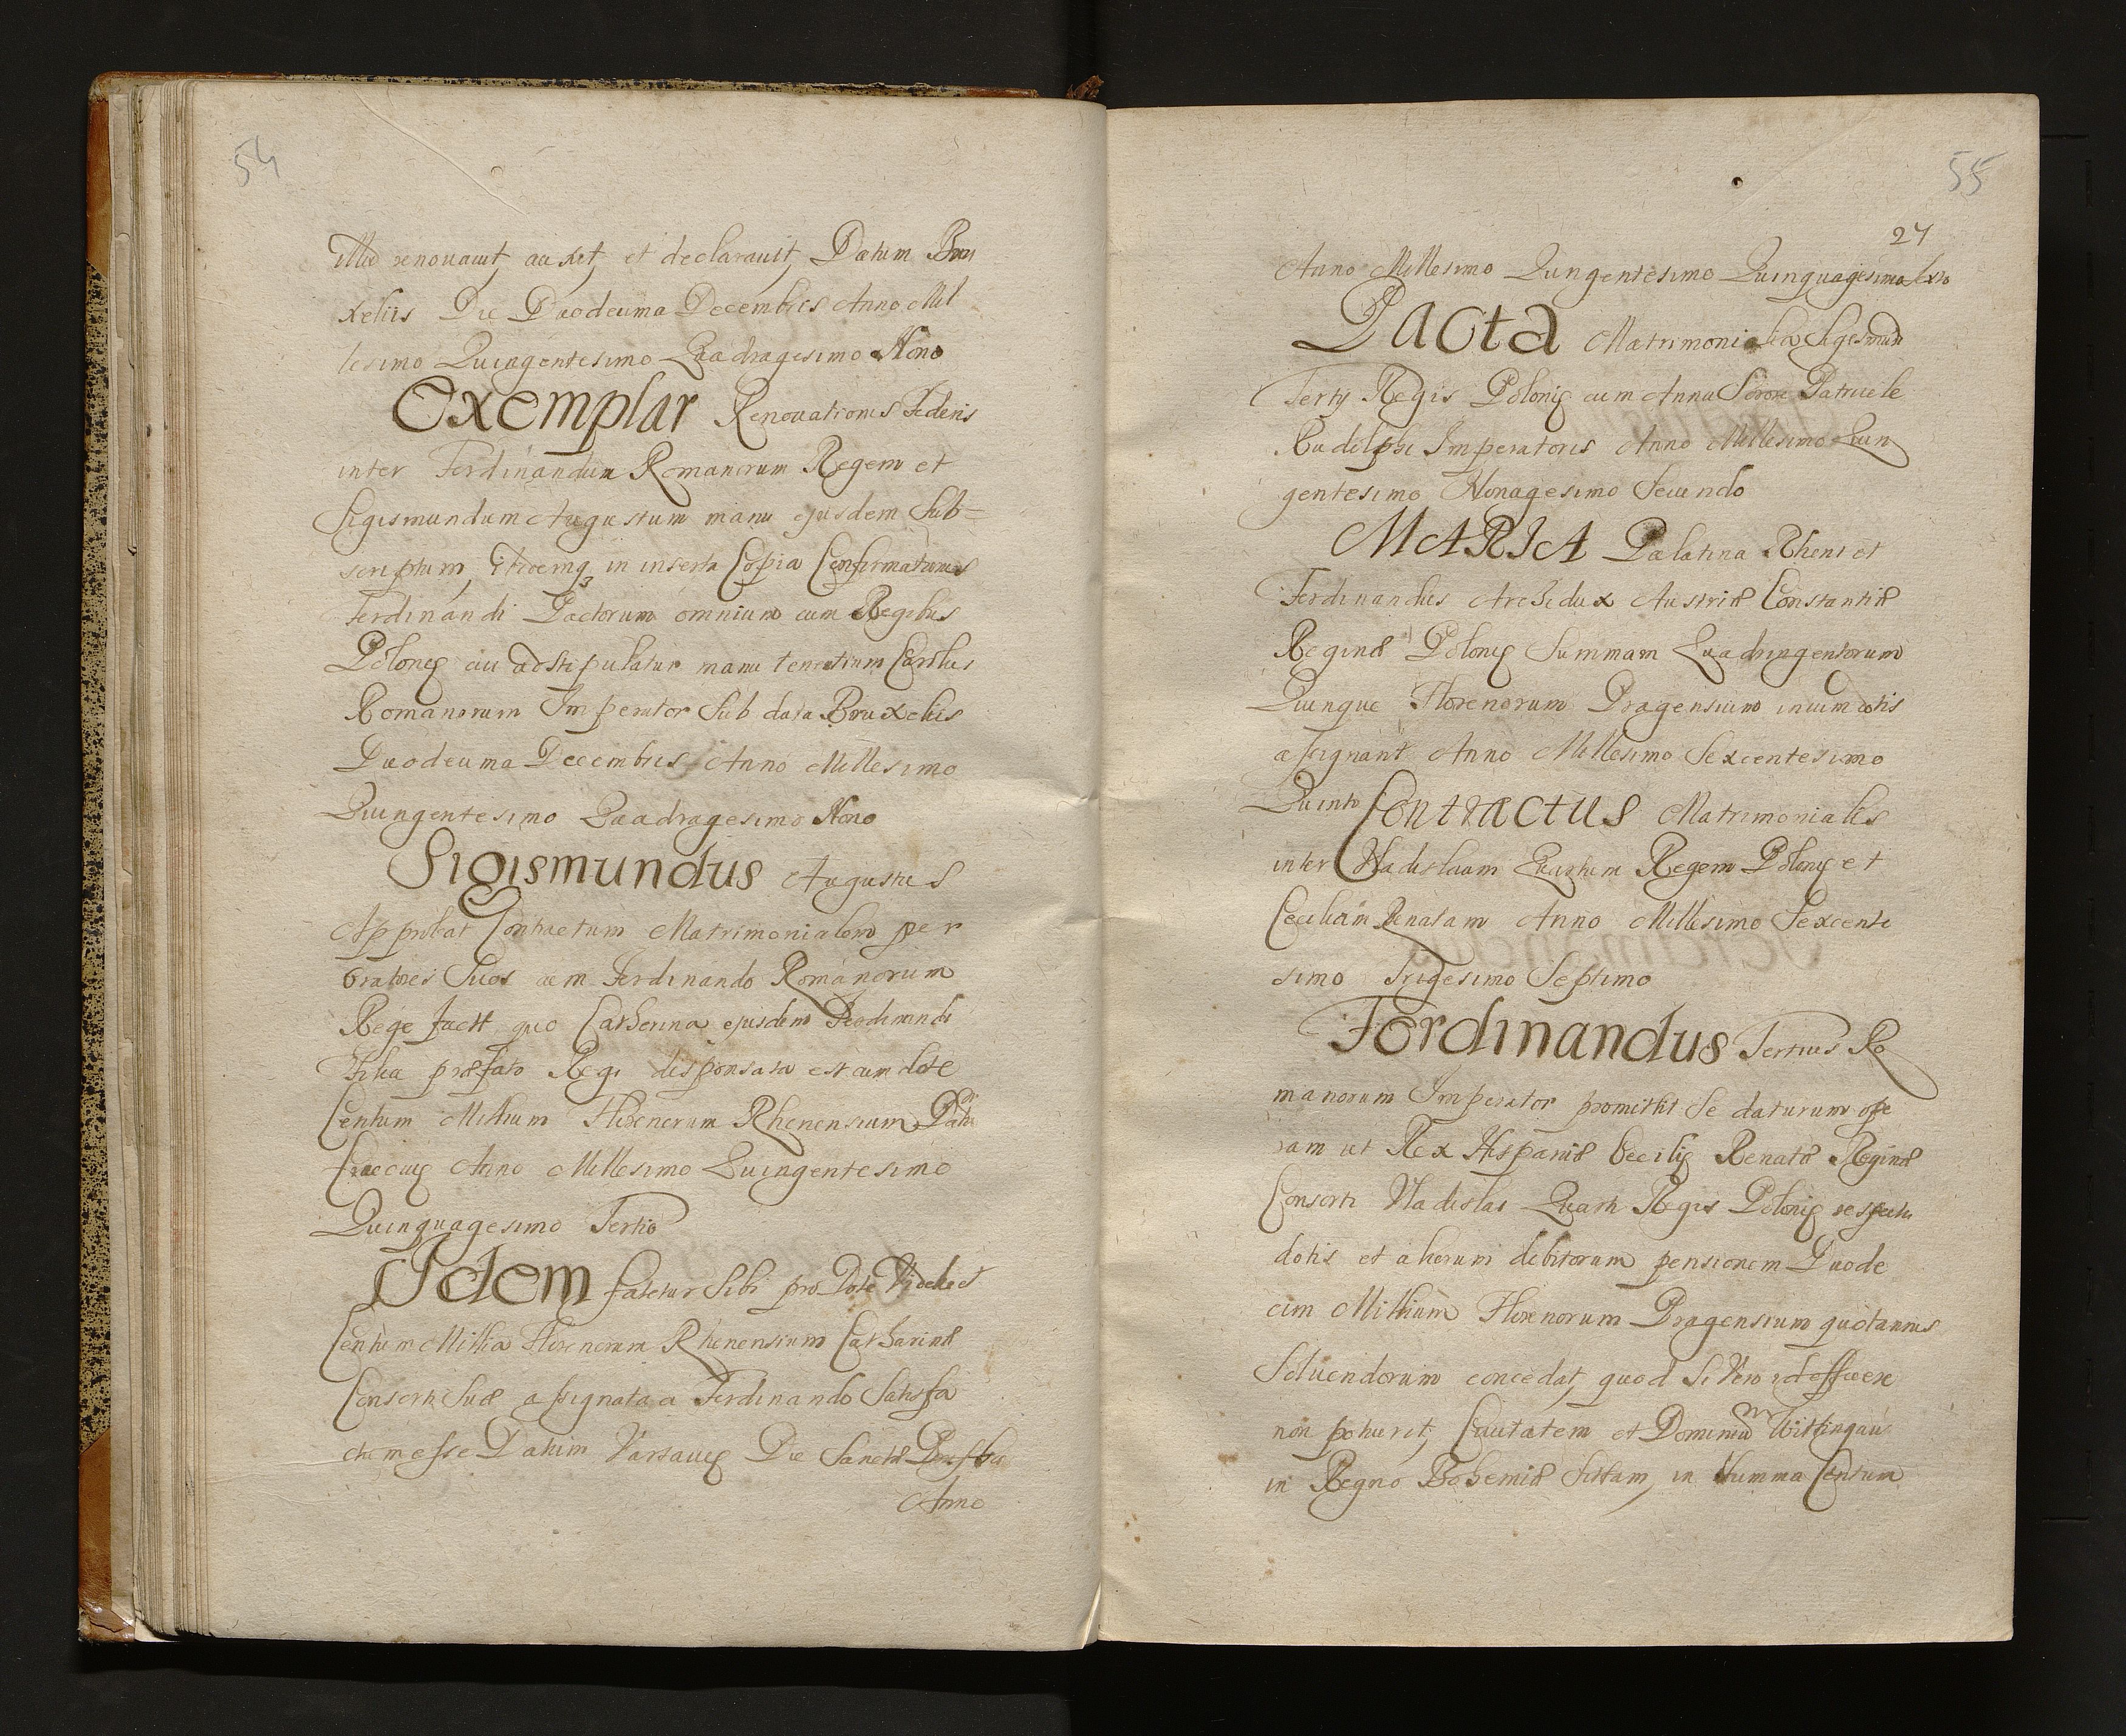 54
Illud renovavit, auxit, et declaravit, Datum Bru
xellis Die Duodecima Decembris Anno Mil
lesimo Quingentesimo Quadragesimo Nono
Exemplar Renovationis Federis
inter Ferdinandum Romanorum Regem et
Sigismundum Augustum manu ejusdem Sub=
scriptum, in inserta Copia Confirmationis
Ferdinandi Pactorum omnium cum Regibus
Polonię cui adstipulatur manu Carolus
Romanorum Imperator Sub data Bruxelis
Duodecima Decembris Anno Millesimo
Quingentesimo Quadragesimo Nono
Sigismundus Augustus
Approbat Contractum Matrimonialem per
Oratores Suos cum Ferdinando Romanorum
Rege quo Catherina ejusdem Ferdinandi
Filia præfato Regi disponsata est cum dote
Centum Millium Florenorum Rhenensium Datū
Cracovię Anno Millesimo Quingentesimo
Quinquagesimo Tertio
Idem fatetur Sibi pro Dote Videlicet
Centum Millia Florenorum Rhenensium Catharinæ
Consorti Suæ assignata a Ferdinando Satisfa
ctum esse Datum Varsavię Die Sanctæ
Anno
55
27
Anno Millesimo Quingentesimo Quinquagesimo
Pacta Matrimonialia Sigismun
Tertij Regis Polonię cum Anna Sorore Patruele
Rudolphi Imperatoris Anno Millesimo Quin
gentesimo Nonagesimo Secundo
MARIA Palatina Rheni et
Ferdinandus Archidux Austriæ Constantiæ
Reginæ Polonię Summam Quadringentorum
Quinque Florenorum Pragensium in vim dotis
assignant Anno Millesimo Sexcentesimo
Quinto Contractus Matrimonialis
inter Vladislaum Quartum Regem Polonię et
Ceciliam Renatam Anno Millesimo Sexcente
simo Trigesimo Septimo
Ferdinandus Tertius Ro
manorum Imperator promittit Se daturum ope
ram ut Rex Hispaniæ Cecilię Renatæ Reginæ
Consorti Vladislai Quarti Regis Polonię respectu
dotis et aliorum debitorum pensionem Duode
cim Millium Florenorum Pragensium quotannis
Solvendorum concedat, quod Si Vero id efficere
non potuerit, Civitatem et Dominiū Wittingau
in Regno Bohemiæ Sittam, in Summa Centum